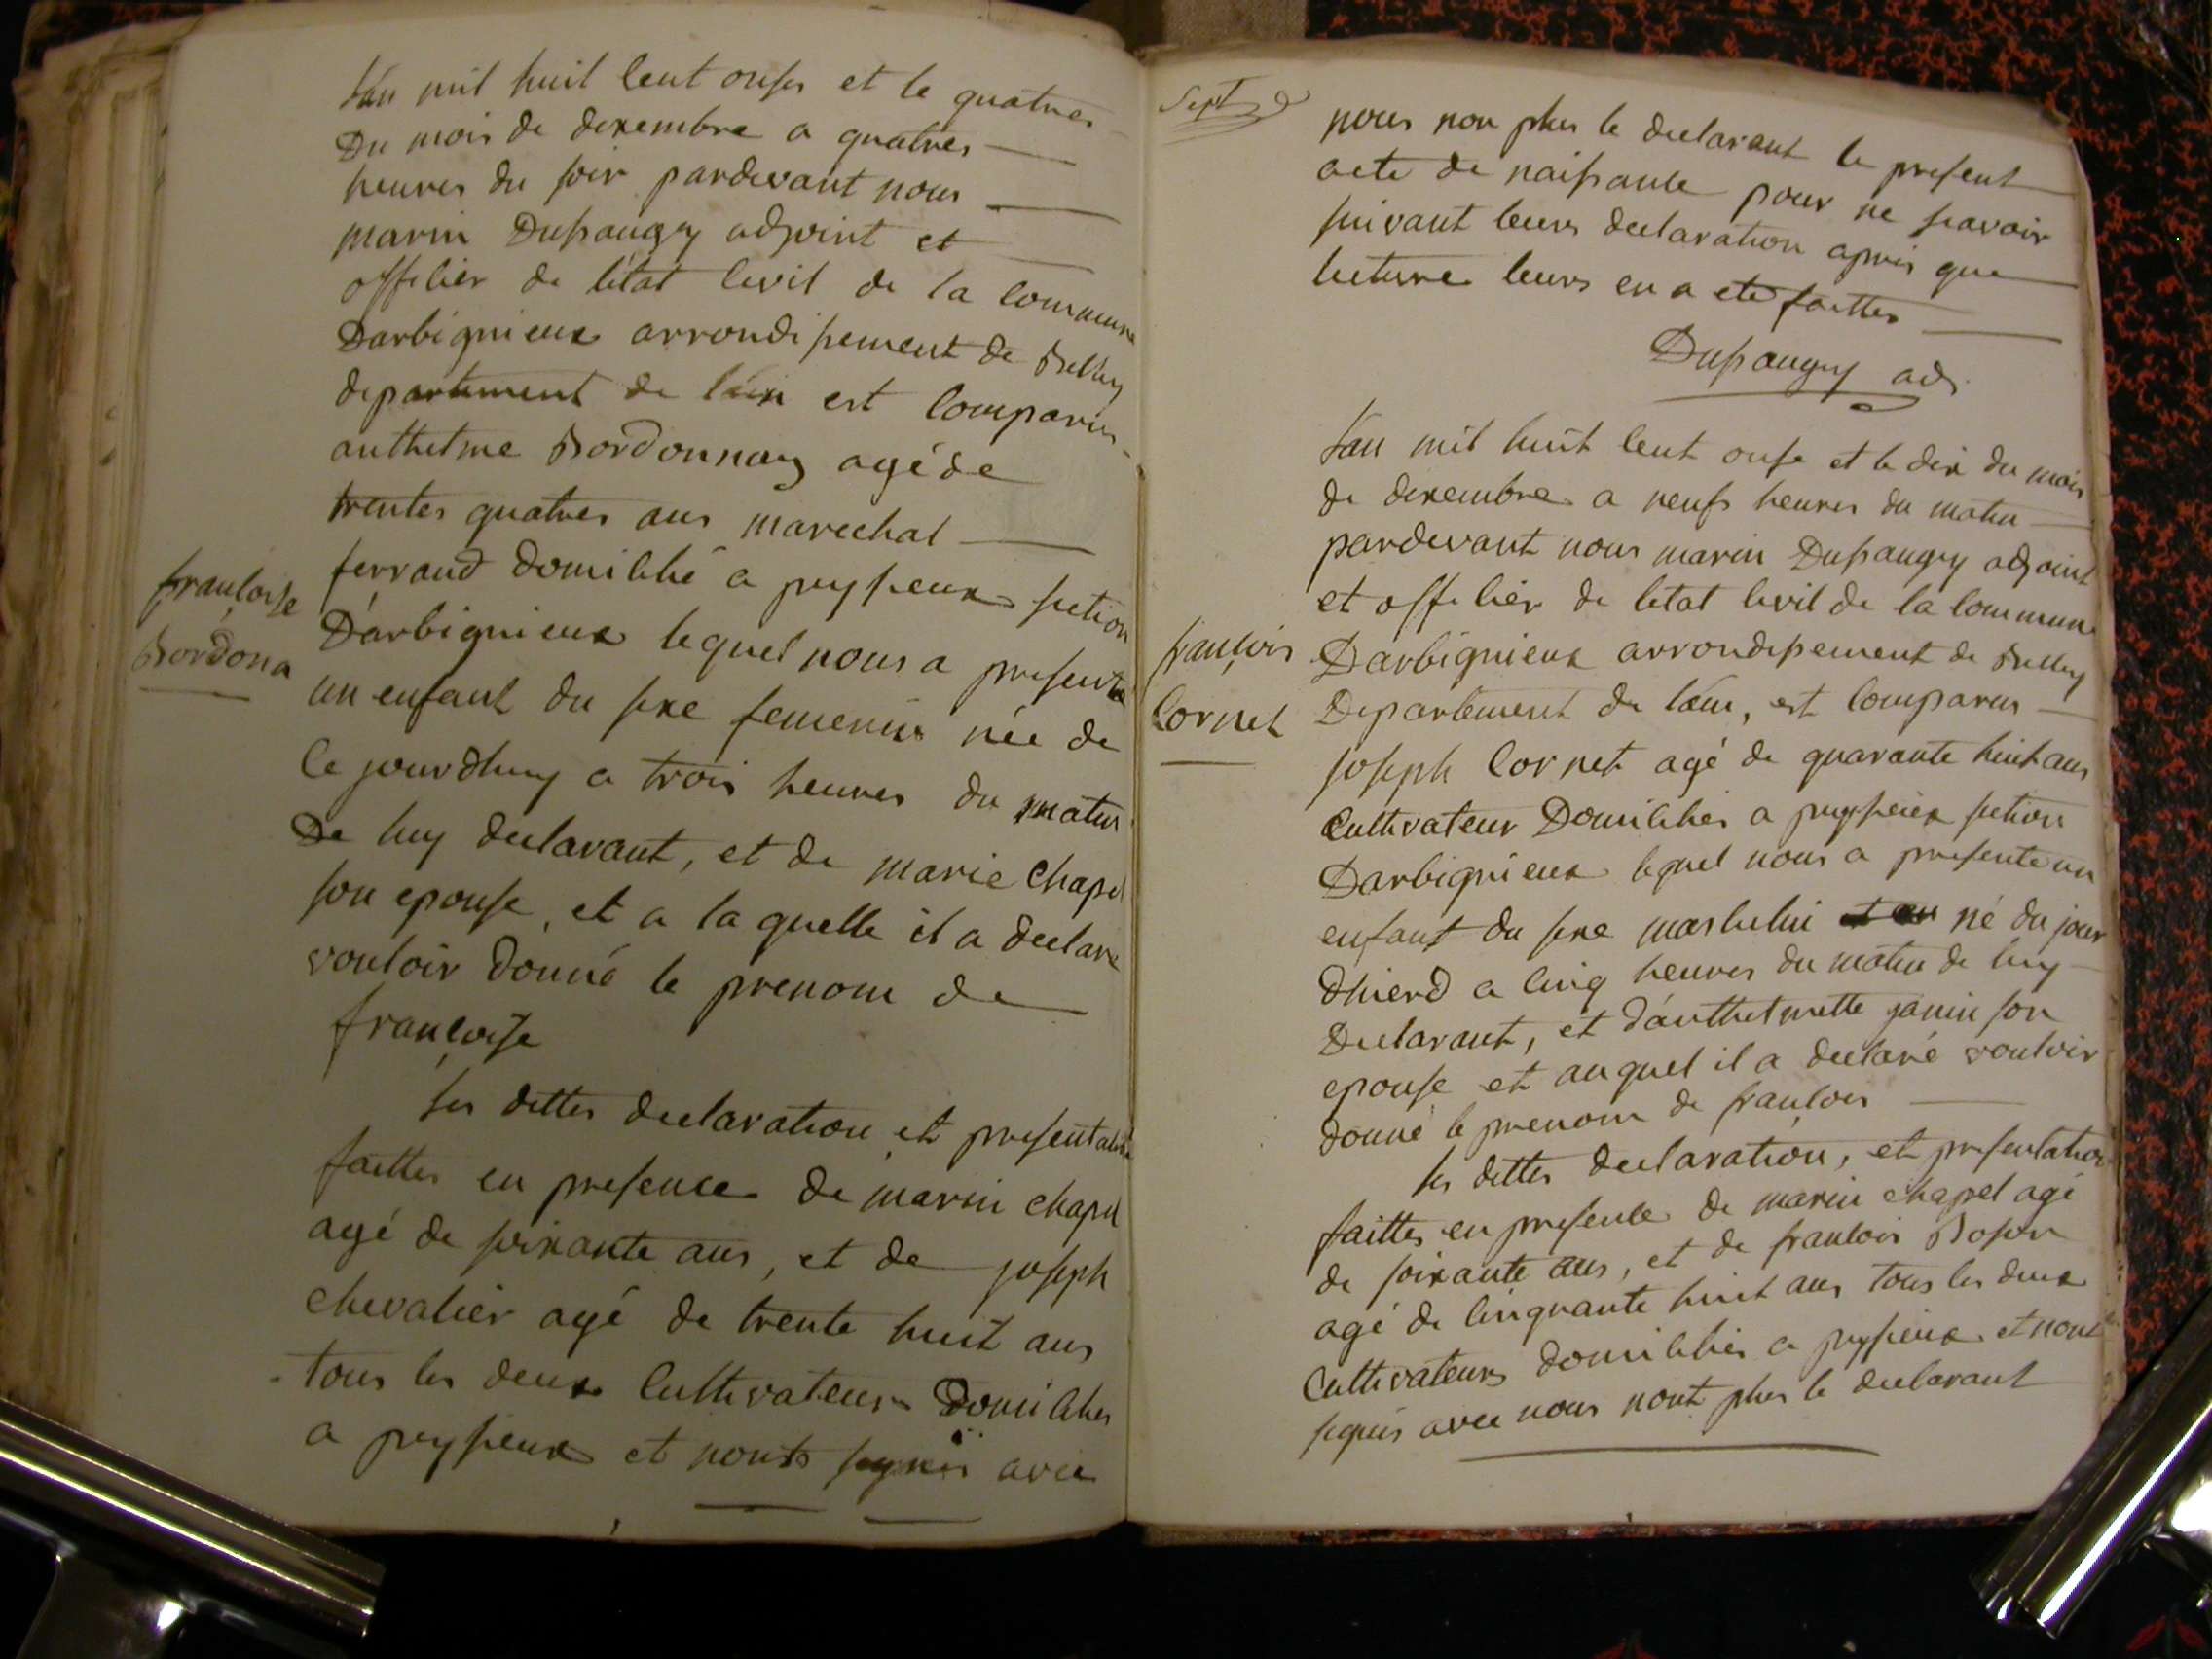 Lan mil huit cent onses et le quatres
Du mois de dexembre a quatres
heures du soir pardevant nous
marin Dussaugey adjoint et
officier de létat civil de la commune
Darbignieux arrondissement de Belley
departement de lain est comparus
anthelme Bordonnay agé de
trentes quatres ans marechal
ferrand domicilié a peyssieux section
Darbignieux lequel nous a presenté
un enfant du sexe femenin née de
ce jourdhuy a trois heures du matin
De luy declarant, et de marie Chapel
son epouse, et a la quelle il a declare
vouloir donné le prenom de
françoise
françoise
Bordona
les dittes declaration et presentation
faittes en presence de marin chapel
agé de soixante ans, et de joseph
chevalier agé de trente huit ans
tous les deux Cultivateurs Domicilies
a peyssieux et nonts signés avec
Sept
nous non plus le declarant le present
acte de naissance pour ne scavoir
suivant leurs declaration aprés que
lecture leurs en a eté faittes
Dussaugey adj.
Lan mil huit cent onse et le dix du mois
de dexembre a neufs heures du matin
pardevant nous marin Dussaugey adjoint
et officier de letat civil de la commune
Darbignieux arrondissement de Belley
Departement de lain, est comparus
joseph Cornet agé de quarante huit ans
Cultivateur Domicilies a peyssieux section
Darbignieux lequel nous a presente un
enfant du sexe masculin né du jour
dhierd a cinq heures du matin de luy
Declarant, et d'anthelmette janin son
epouse et auquel il a declaré vouloir
donné le prenom de francois
françois
Cornet
les dittes declaration, et presentation
faittes en presence de marin chapel agé
de soixante ans, et de francois Boson
agé de cinquante huit ans tous les deux
Cultivateurs domicilies a peyssieux et nont
signés avec nous nont plus le declarant